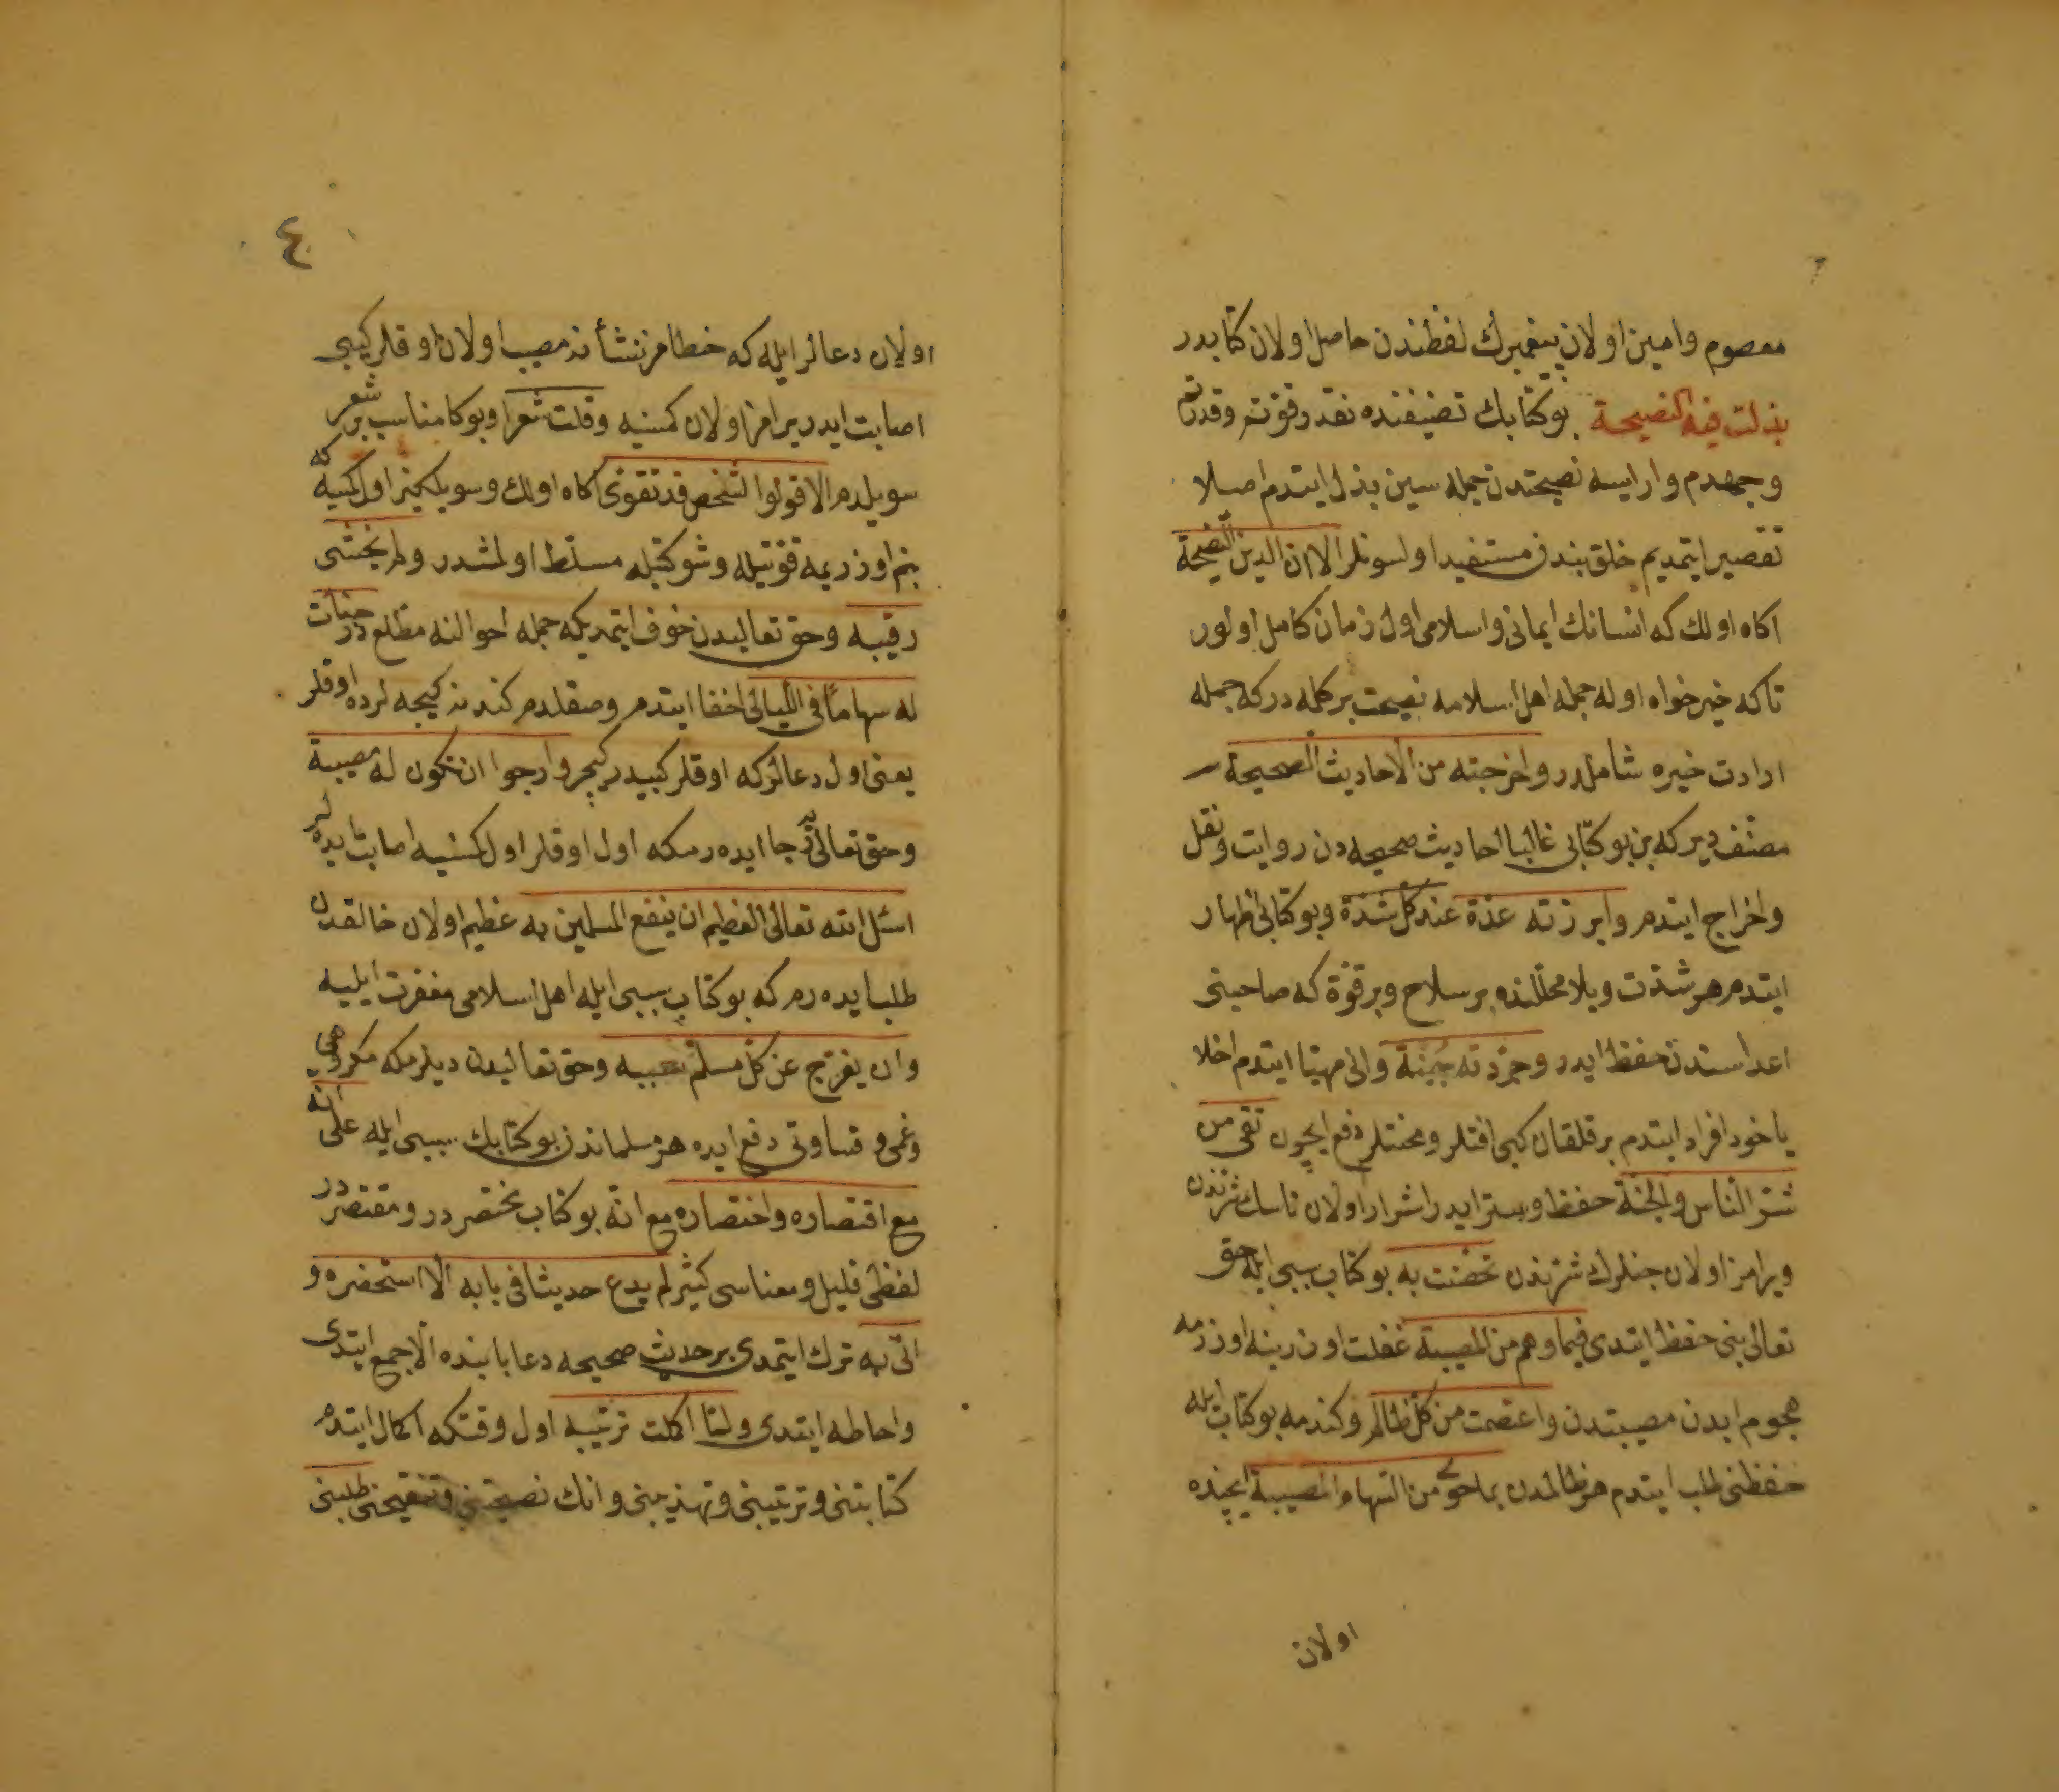 معصوم وامین اولان پیغمبرك لفظندن حاصل اولان کتابدر
بذلت فیه النصیحة بو کتابك تصنیفنده نقدر قوتم وقدرتم
وجهدم وار ایسه نصیحتدن جمله سین بذل ایتدم اصلا
تقصیر ایتمدیم خلق بندن مستفید اولسونلر الا ان الدین النصیحة
اکاه اولك که انسانك ایمانی واسلامی اول زمان کامل اولور
تاکه خیر خواه اوله جمله اهل اسلامه نصیحت بر کلمه در که جمله
ارادت خیره شاملدر واخرجته من الاحادیث الصحیحة
مصنف دیر که بن بو کتابی غالبا احادیث صحیحه دن روایت ونقل
واخراج ایتدم وابرزته عدة عند کل شدة وبو کتابی اظهار
ایتدم هر شدت وبلا محللنده بر سلاح وبر قوة که صاحبنی
اعداسندن حفظ ایدر وجردته جنة وانی مهیا ایتدم اخلا
یاخود افراد ایتدم بر قلقان کبی افتلر ومحنتلر دفع ایچون تقی من
شر الناس والجنة حفظ وستر ایدر اشرار اولان ناسك شرندن
ویرامز اولان جنلرك شرندن تحصنت به بو کتاب سببی ایله حق
تعالی بنی حفظ ایتدی فیما دهم من المصیبة غفلت اوزرینه اوزرمه
هجوم ایدن مصیبتدن واعتصمت من کل ظالم وکندمه بو کتاب ایله
حفظنی طلب ایتدم هر ظالمدن بما حوی من السهام المصیبة ایچنده
اولان
٤
اولان دعالر ایله که خطا مز نشانه مصیب اولان اوقلر کبی
اصابت ایدر یرامز اولان کمسنیه وقلت شعرا وبوکا مناسب بر شعر
سویلدم الا قولوا لشخص قد تقوی اکاه اولك وسویلیکز اول کمسیه که
بنم اوزریمه قوتیله وشوکتیله مسلط اولمشدر ولم یخشی
رقیبه وحق تعالیدن خوف ایتمدیکه جمله احوالنه مطلع در خبأت
له سهاما فی اللیالی اخفا ایتدم وصقلدم کندنه کیجه لرده اوقلر
یعنی اول دعالر که اوقلر کبیدر کچر وارجوا ان تکون له مصیبة
وحق تعالیدن رجا ایده رمکه اول اوقلر اول کمسنیه اصابت ایده لر
اسئل الله تعالی العظیم ان ینفع المسلمین به عظیم اولان خالقدن
طلب ایده رم که بو کتاب سببی ایله اهل اسلامی مغفرت ایلیه
وان یفرج عن کل مسلم بسببه وحق تعالیدن دیلرمکه مکروهی
وغمی وقساوتی دفع ایده هر مسلماندن بو کتابك سببی ایله علی انه
مع اقتصاره واختصاره مع انه بو کتاب مختصر در ومقتصر در
لفظی قلیل ومعناسی کثیر لم یدع حدیثا فی بابه الا استحضره و
اتی به ترك ایتمدی بر حدیث صحیحه دعا بابنده الا جمع ایتدی
واحاطه ایتدی ولما اکملت ترتیبه اول وقتکه اکمال ایتدم
کتابتنی وترتیبنی وتهذیبنی وانك نصیحتنی وتنقیحنی طلبنی